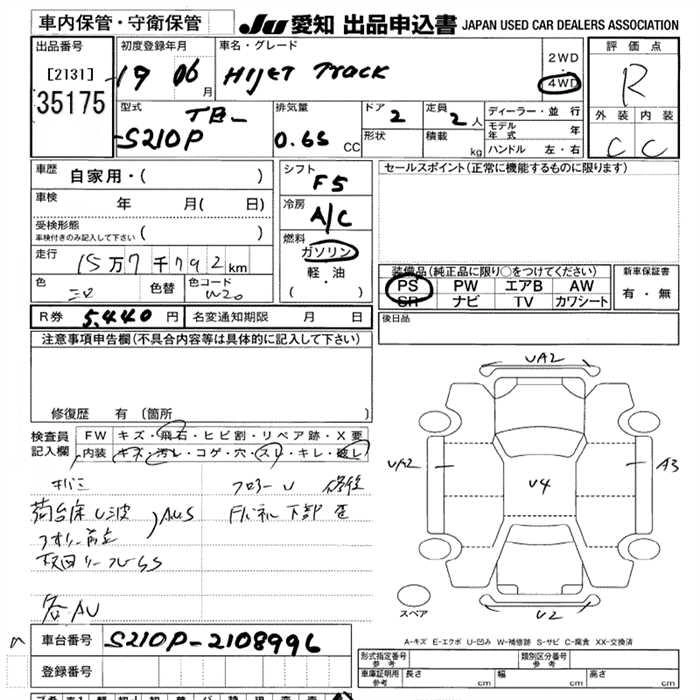 車内保管・守衛保管
JU 愛知 出品申込書 JAPAN USED CAR DEALERS ASSOCIATION
出品番号
[2131]
35175
初度登録年月
19 06 月
車名・グレード
HIJET TRUCK
2WD
・
4WD
評価点
R
外装 内装
C C
型式
TB-
S210P
排気量
0.65 CC
ドア 2
形状
定員 2 人
積載 kg
ディーラー・並 行
モデル年式 年
ハンドル 左・右
車歴 自家用・( )
車検 年 月( 日)
受検形態
車検付きのみ記入して下さい ( )
走行 15万7千792km
色 色替 色コード W20
シフト F5
冷房 A/C
燃料
ガソリン
軽・油
( )
セールスポイント(正常に機能するものに限ります)
装備品(純正品に限り○をつけてください)
PS PW エアB AW
SR ナビ TV カワシート
新車保証書
有・無
R券 5,440 円 名変通知期限 月 日
後日品
注意事項申告欄(不具合内容等は具体的に記入して下さい)
修復歴 有 (箇所
検査員記入欄
FW キズ・飛石・ヒビ割・リペア跡・X要
内装 キズ・汚レ・コゲ・穴・スレ・キレ・破レ
フロアーU 修後
荷台床U波
AUS
各AU
UA2
UA2
A3
U4
U2
スペア
A-キズ E-エクボ U-凹み W-補修跡 S-サビ C-腐食 XX-交換済
車台番号 S210P-2108996
登録番号
形式指定番号
参考
類別区分番号
参考
車庫証明用
参考
長さ cm 幅 cm 高さ cm